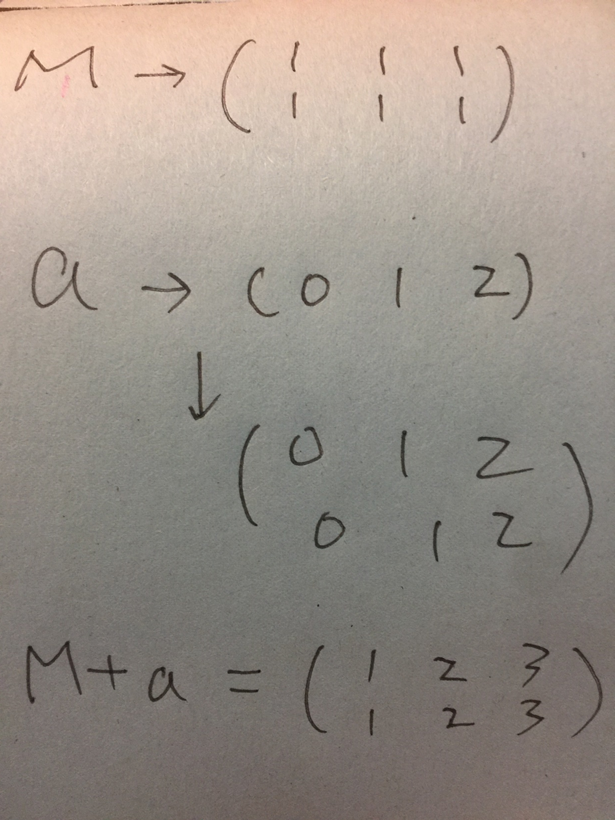 M → ( 1 1 1
1 1 1 )
a → ( 0 1 2 )
↓
( 0 1 2
0 1 2 )
M + a = ( 1 2 3
1 2 3 )